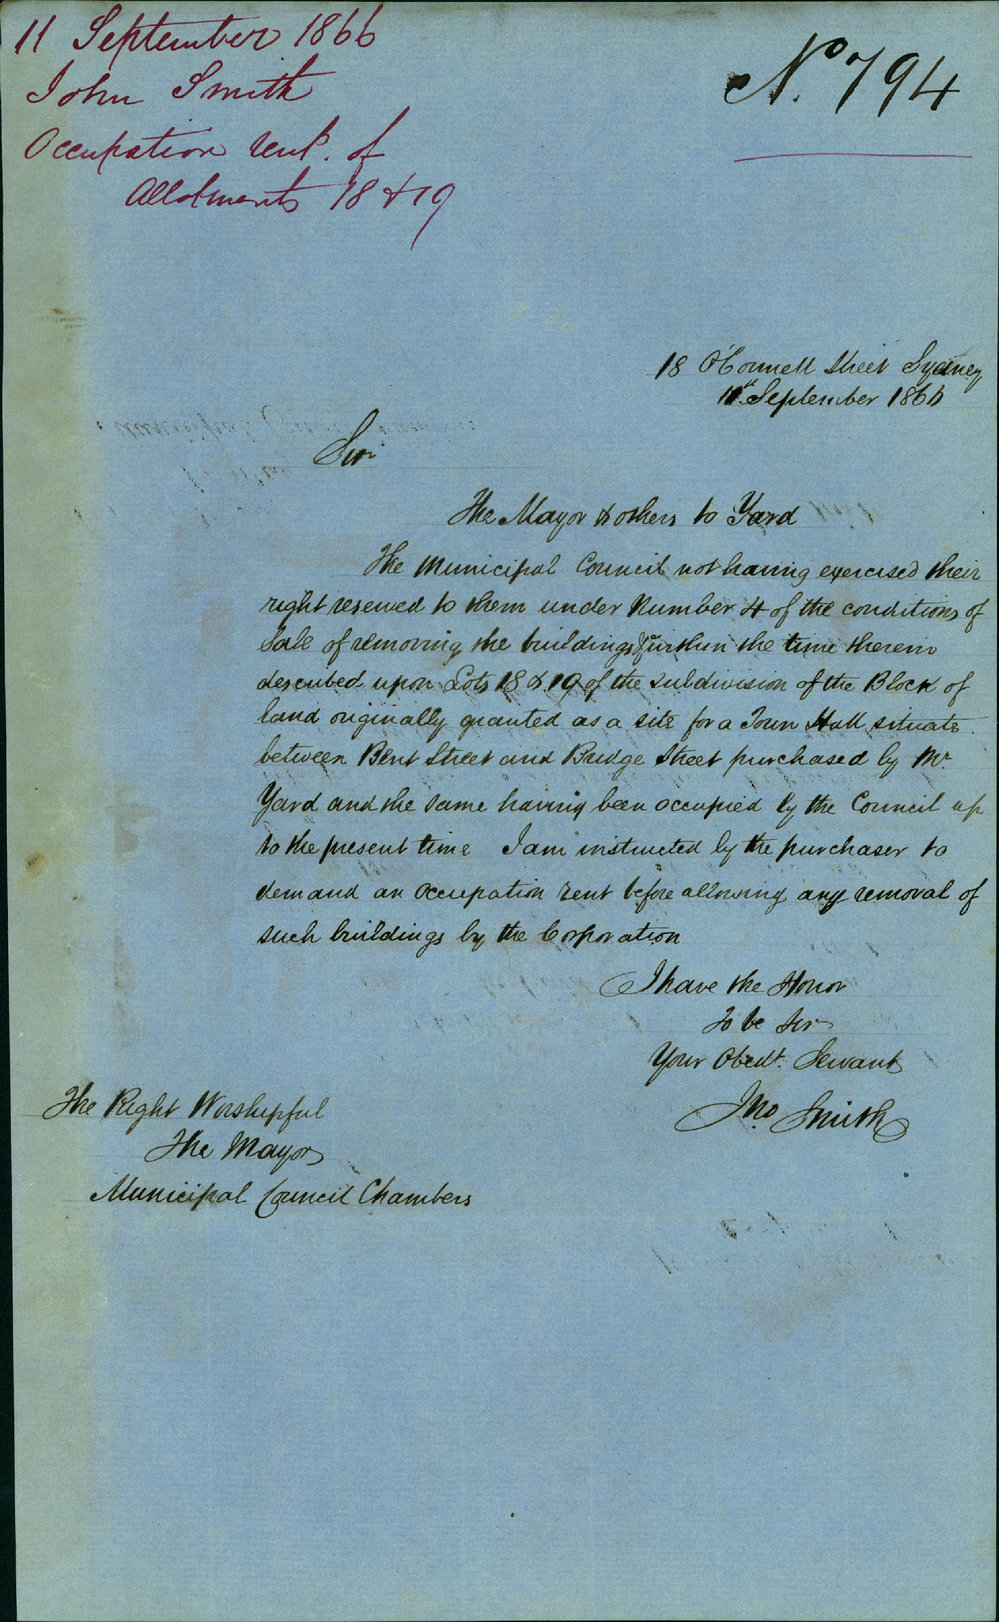 11 September 1866
John Smith
Occupation rent. of
Allotments 18 & 19
No. 794
18 O'Connell Street Sydney
11th September 1866
Sir
The Mayor & others to Yard
The Municipal Council not having exercised their
right reserved to them under Number 4 of the conditions of
Sale of removing the buildings within the time therein
described upon Lots 18 & 19 of the subdivision of the Block of
land originally granted as a site for a Town Hall situate
between Bent Street and Bridge Street purchased by Mr.
Yard and the same having been occupied by the Council up
to the present time I am instructed by the purchaser to
demand an occupation rent before allowing any removal of
such buildings by the Corporation
I have the Honor
To be Sir
Your Obedt. Servant
Jno. Smith
The Right Worshipful
The Mayor
Municipal Council Chambers